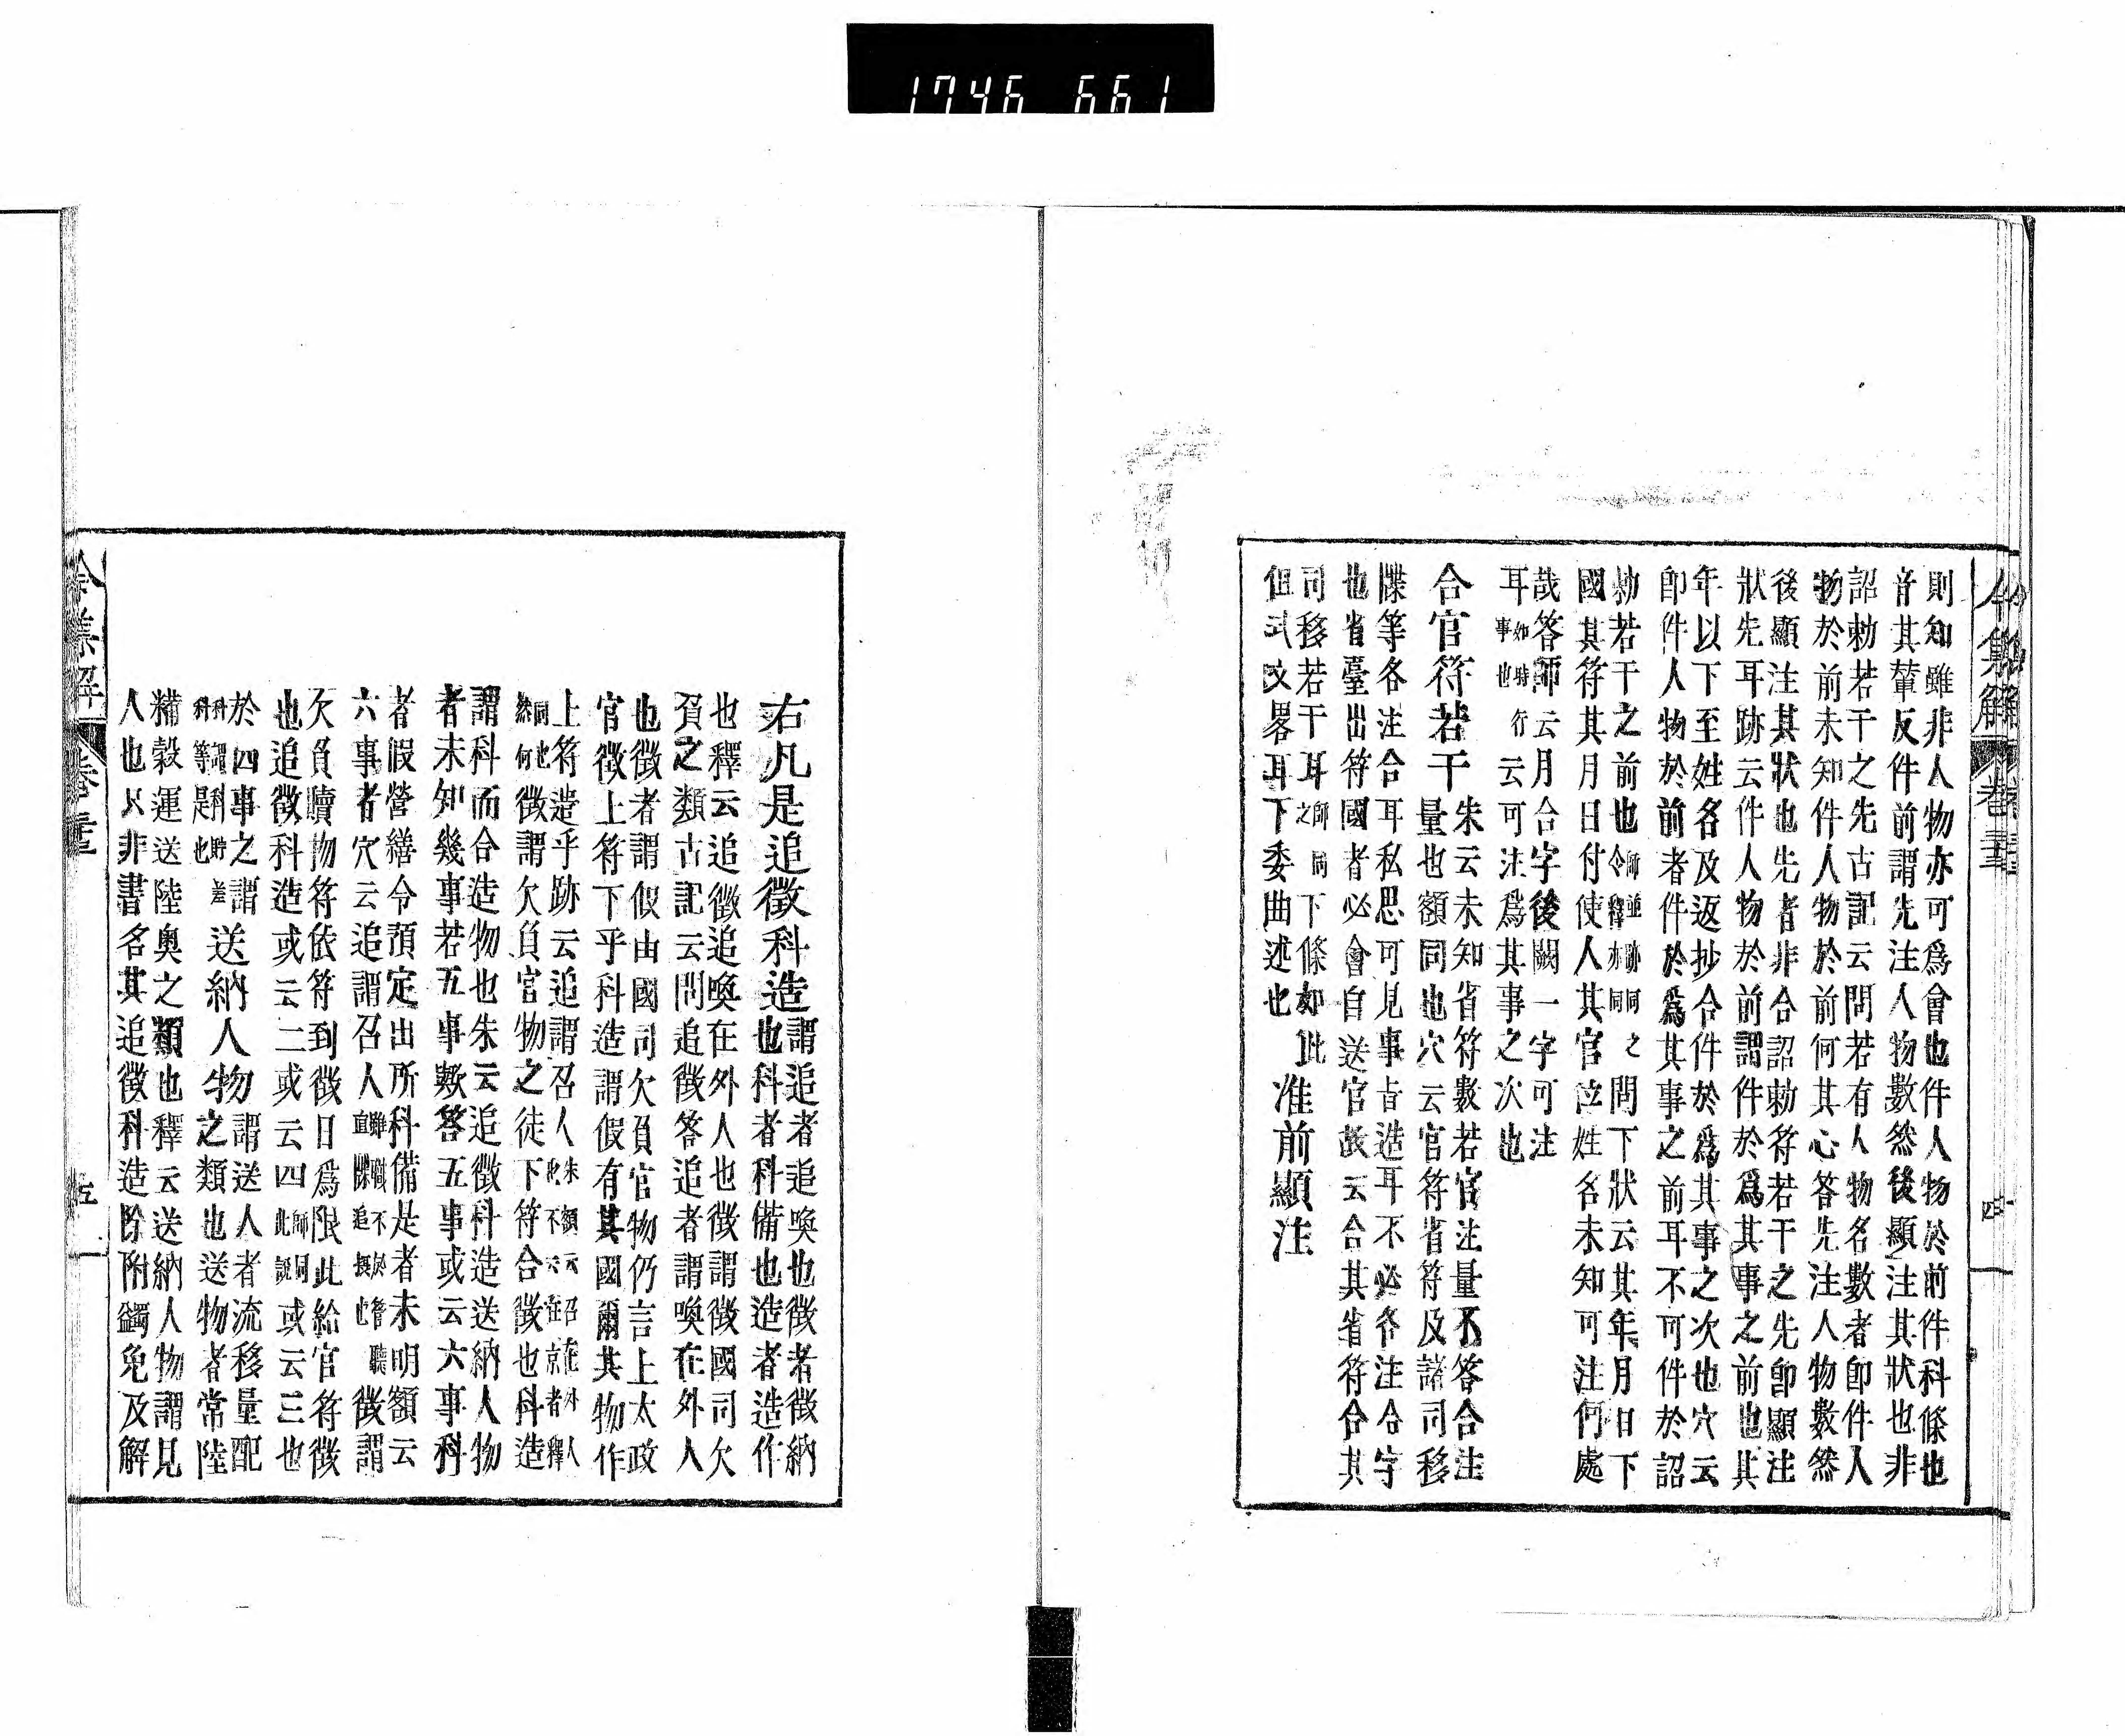 1746 661
令集解 卷三十五 四
則知雖非人物亦可爲會也件人物於前件科條也
音其輦反件前謂先注人物數然後顯注其狀也非
詔勅若干之先古記云問若有人物名數者卽件人
物於前未知件人物於前何其心答先注人物數然
後顯注其狀也先者非合詔勅符若干之先卽顯注
狀先耳跡云件人物於前謂件於爲其事之前也其
年以下至姓名及返抄合件於爲其事之次也穴云
卽件人物於前者件於爲其事之前耳不可件於詔
勅若干之前也令釋亦同之問下狀云其年月日下
國其符其月日付使人其官位姓名未知可注何處
哉答師云月合字後闕一字可注
耳事也行云可注爲其事之次也
合官符若干
朱云未知省符數若官注量不答合注
量也額同也穴云官符省符及諸司移
牒等各注合耳私思可見事皆造耳不必各注合字
也省臺出符國者必會自送官故云合其省符合其
司移若干耳師同之下條如此
但式文畧耳下委曲述也
准前顯注
右凡是追徵科造
謂追者追喚也徵者徵納
也科者科備也造者造作
也釋云追徵追喚在外人也徵謂徵國司欠
負之類古記云問追徵答追者謂喚在外人
也徵者謂假由國司欠負官物仍言上太政
官徵上符下乎科造謂假有其國爾其物作
上符造乎跡云追謂召人朱額云召在外人
此不云在京者釋
同也然何徵謂欠負官物之徒下符合徵也科造
謂科而合造物也朱云追徵科造送納人物
者未知幾事若五事歟答五事或云六事科
者假營繕令預定出所科備是者未明額云
六事者穴云追謂召人雖職不
追攝也徵謂
欠負贖物符依符到徵日爲限此給官符徵
也追徵科造或云二或云四師同此說或云三也
於四事之謂科謂科貯差科等是也
送納人物
謂送人者流移量配
之類也送物者常陸
糒穀運送陸奥之類也釋云送納人物謂見
人也只非書名其追徵科造除附蠲免及解
令集解 卷三十五 五